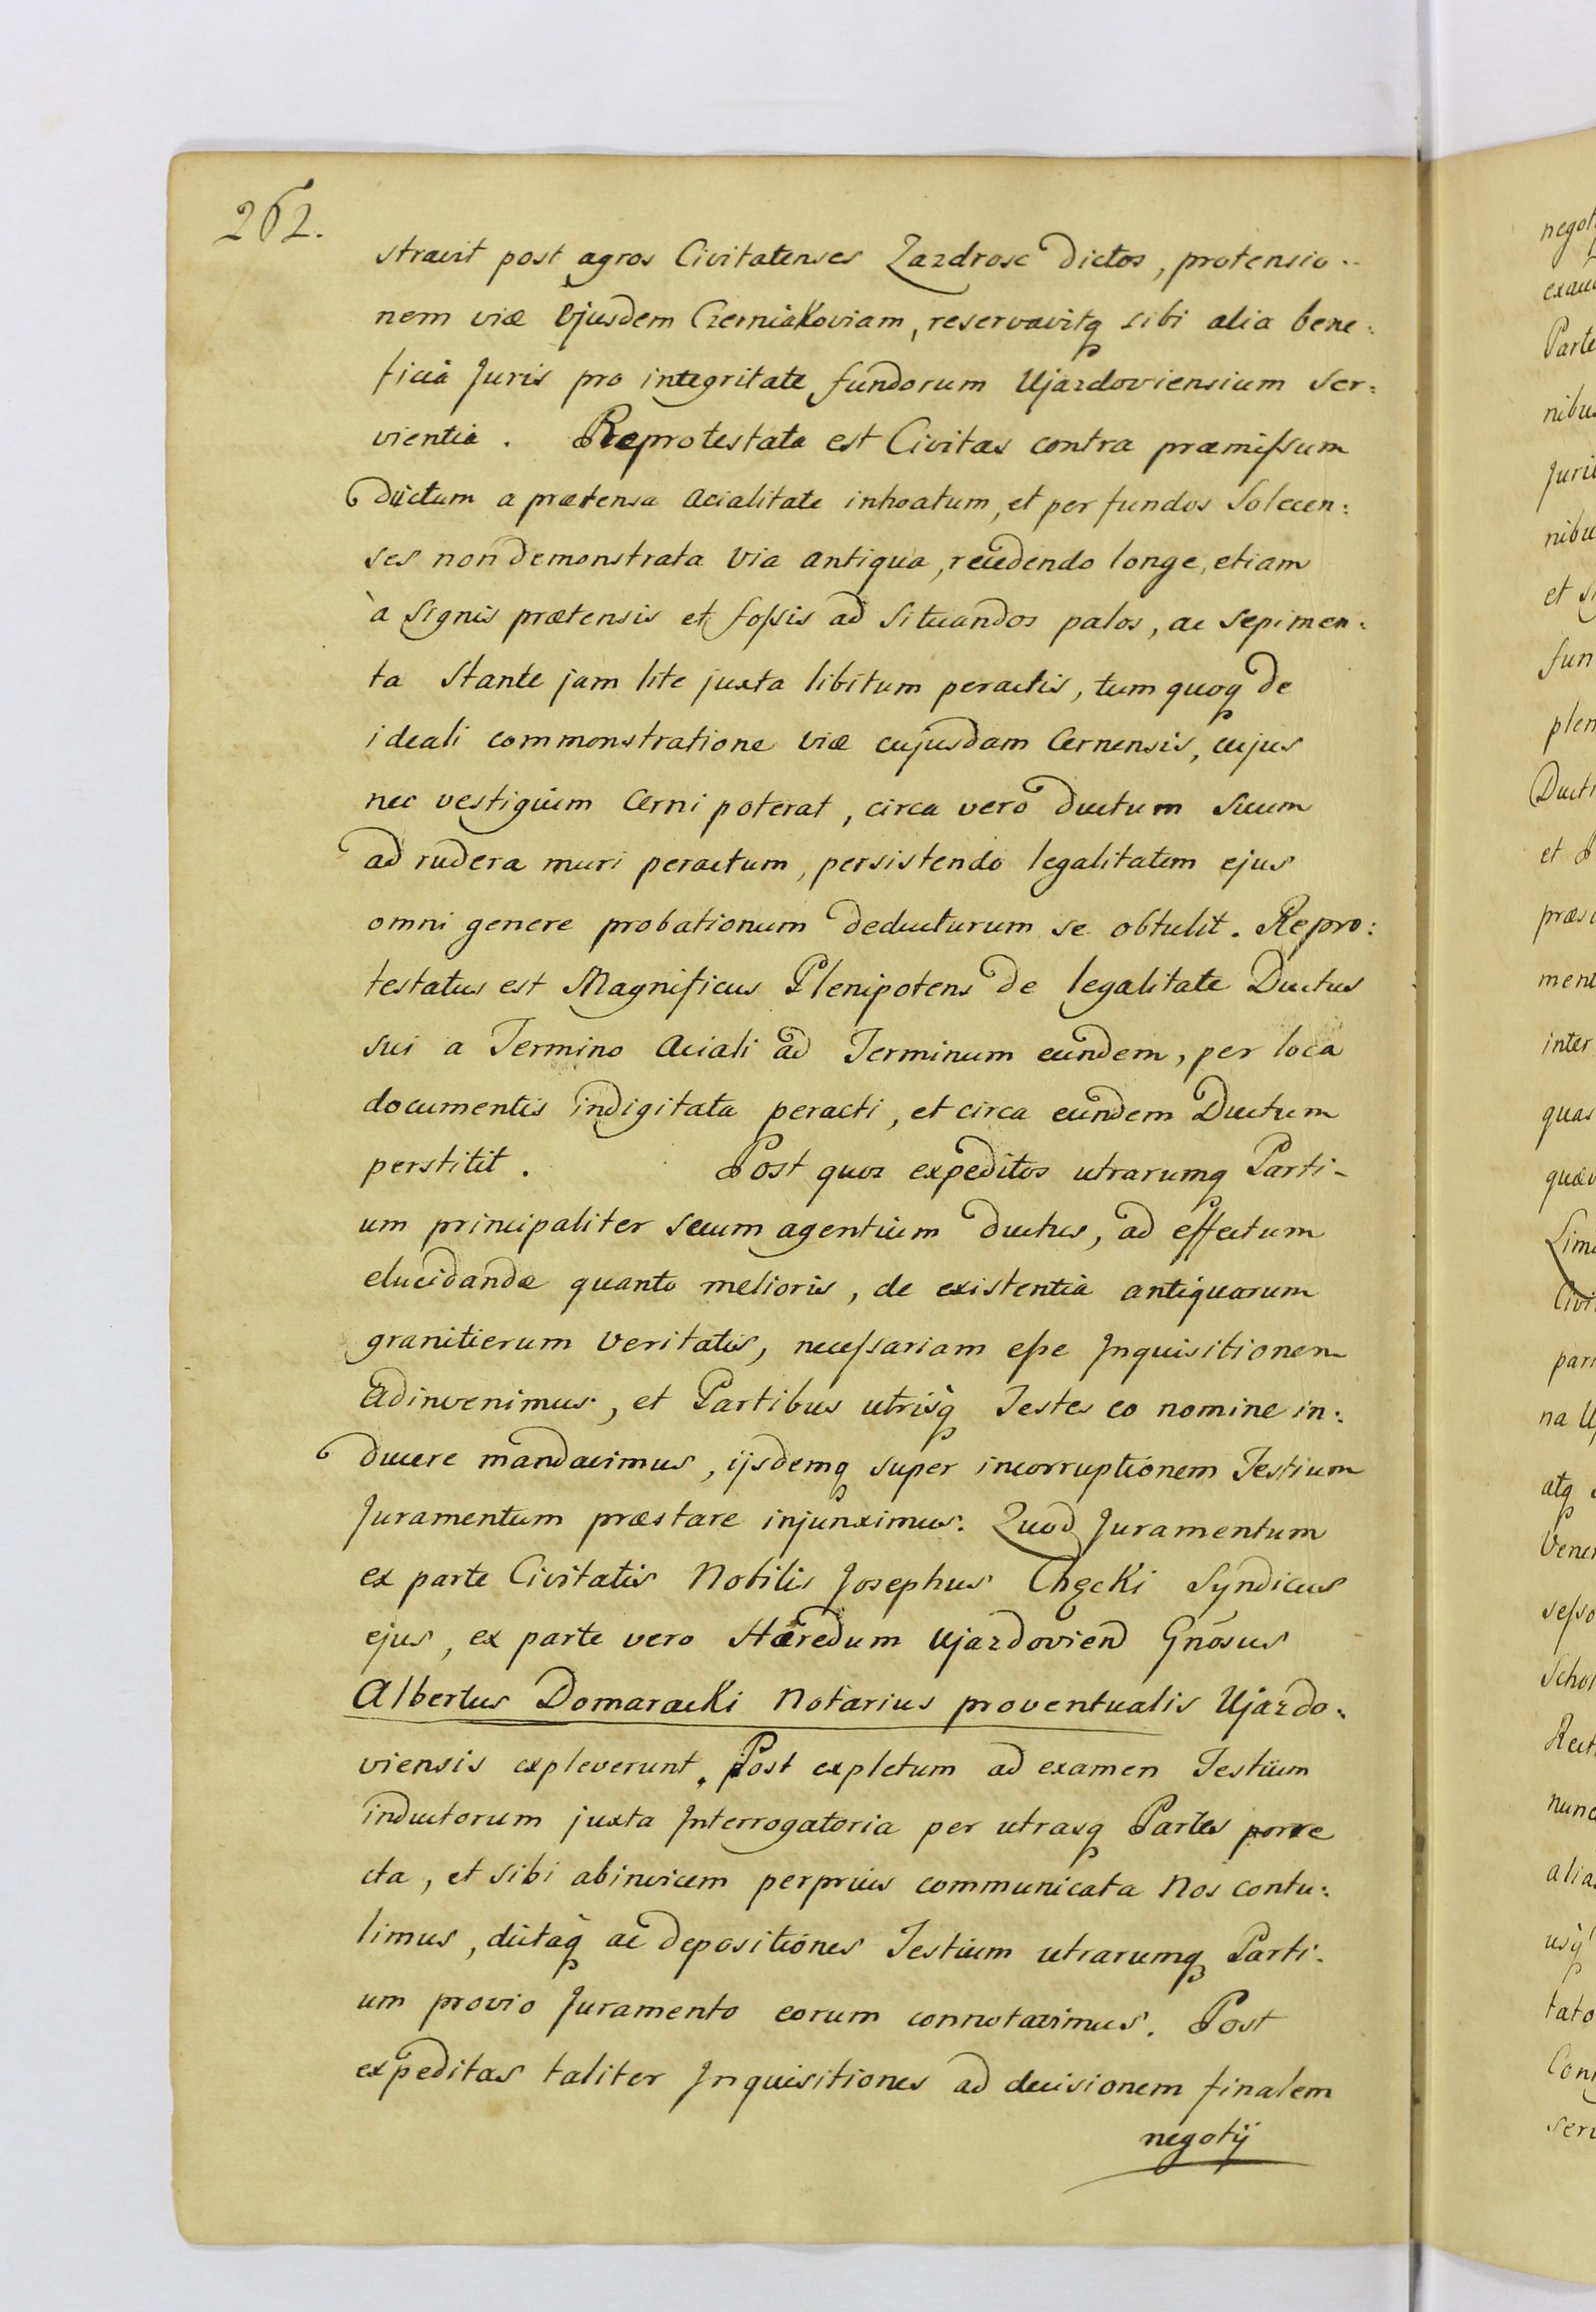 262.
stravit post agros Civitatenses Zazdrosc dictos, protensio..
nem viæ Ejusdem Czerniakoviam, reservavitq sibi alia bene:
ficia Juris pro integritate fundorum Ujazdoviensium ser:
vientia. Reprotestata est Civitas contra præmissum
ductum a prætensa acialitate inhoatum, et per fundos Solecen:
ses non demonstrata via antiqua, recedendo longe, etiam
à signis prætensis et fossis ad situandos palos, ac sepimen:
ta stante jam lite juxta libitum peractis, tum quoq de
ideali commonstratione viæ cujusdam Cernensis, cujus
nec vestigium cerni poterat, circa vero ductum suum
ad rudera muri peractum, persistendo legalitatem ejus
omni genere probationum deducturum se obtulit. Repro:
testatus est Magnificus Plenipotens de legalitate Ductus
sui a Termino aciali ad Terminum eundem, per loca
documentis indigitata peracti, et circa eundem Ductum
perstitit. Post quos expeditos utrarumq Parti-
um principaliter secum agentium ductus, ad effectum
elucidandæ quanto melioris, de existentia antiquarum
granitierum veritatis, necessariam esse Inquisitionem
adinvenimus, et Partibus utrisq Testes eo nomine in:
ducere mandavimus, ijsdemq super incorruptionem Testium
Juramentum præstare injunximus. Quod Juramentum
ex parte Civitatis Nobilis Josephus Chęcki Syndicus
ejus, ex parte vero Hæredum Ujazdoviend Gnosus
Albertus Domaracki Notarius proventualis Ujazdo:
viensis expleverunt. Post expletum ad examen Testium
inductorum juxta Interrogatoria per utrasq Partes porre
cta, et sibi abinvicem perprius communicata Nos contu:
limus, dictaq ac depositiones Testium utrarumq Parti-
um provio Juramento eorum connotavimus. Post
expeditas taliter Inquisitiones ad decisionem finalem
negotij